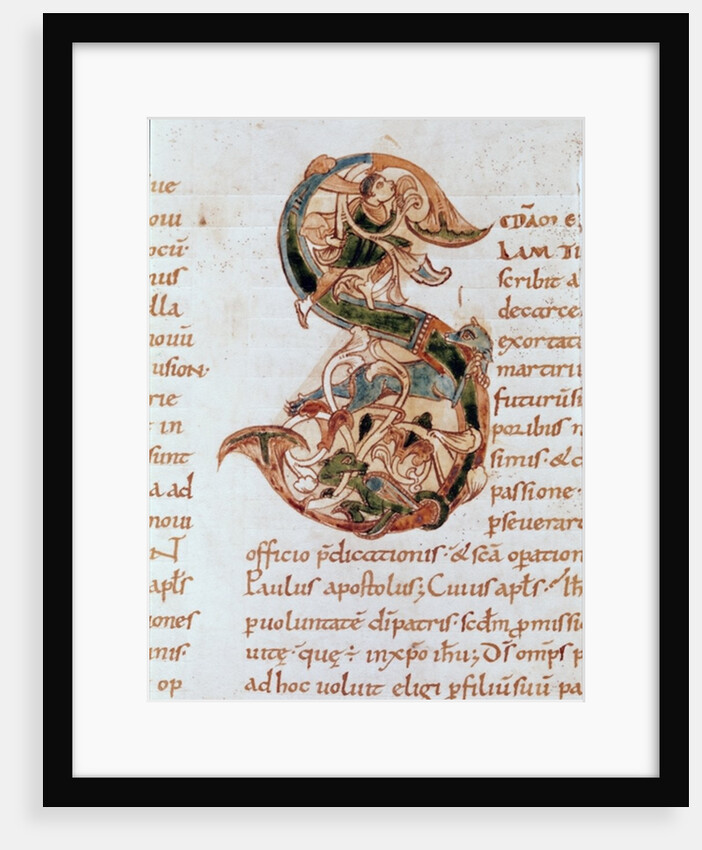 ue
oui
ocū·
nus
lla
nouū
usion·
rie
in
sunt
a ad
noui
N
apłs
iones
nis·
op
LAM TI
scribit a
decarce
exortat
martirii
futurūs
poribus n
simis · & c
passione·
pseuerar
officio p̄dicationis · & scā operation
Paulus apostolus; Cuius apłs · ih
puoluntatē dī patris · scdm pmissi
uitę · quę ÷ in xp̄o ihū; Ds omps p
ad hoc uoluit eligi p filiū suū pa